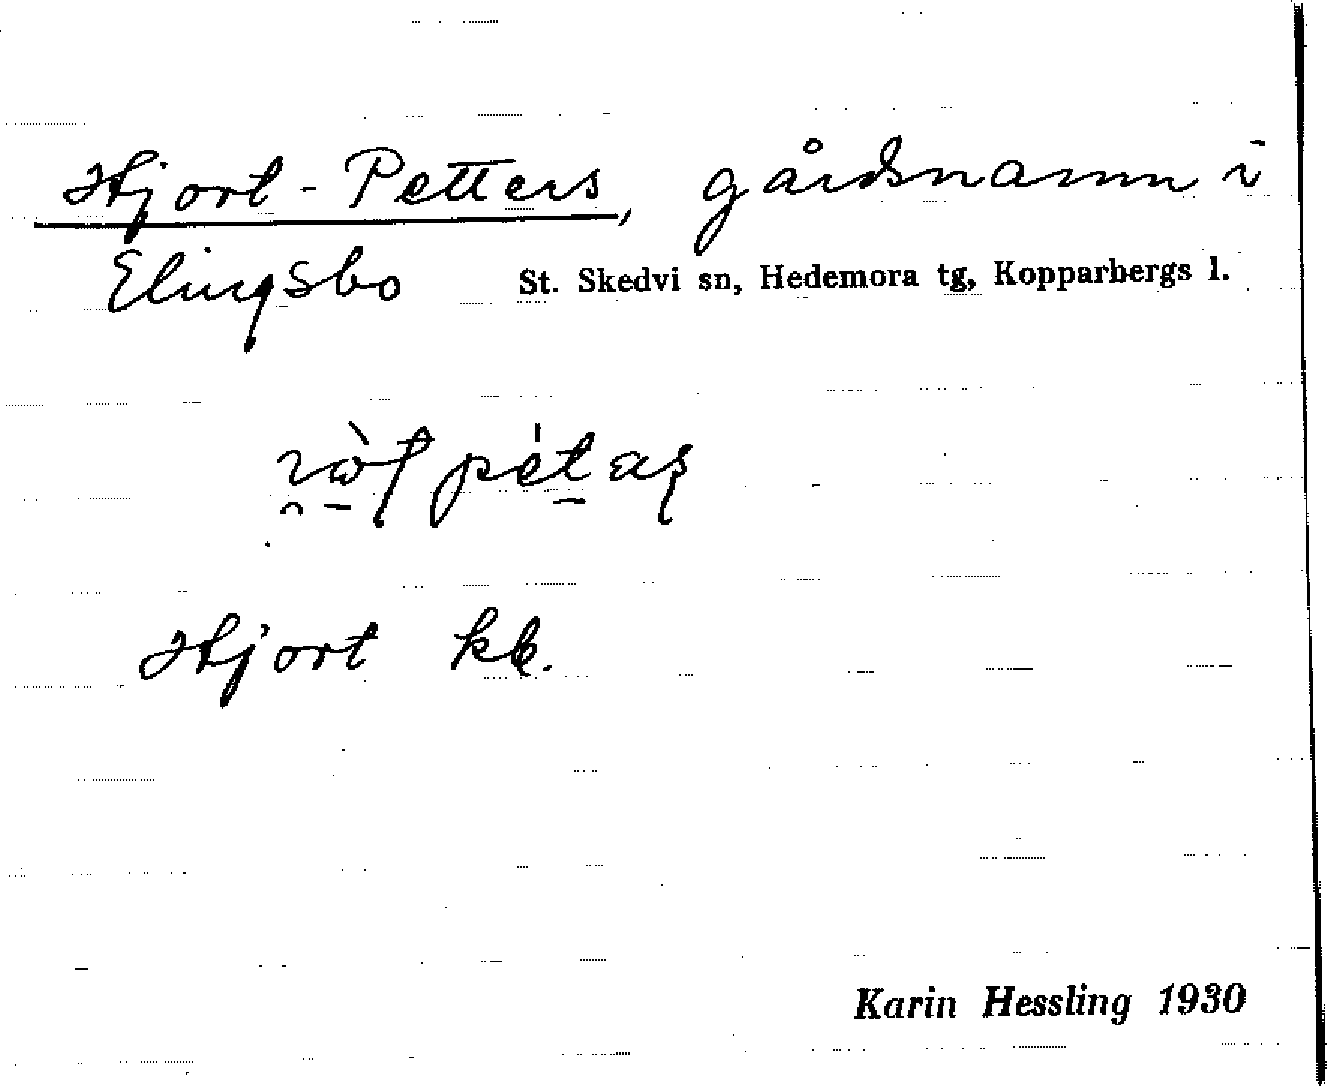 Hjort-Petters, gårdsnamn i
Elingsbo St. Skedvi sn, Hedemora tg, Kopparbergs l.
Hjort kk.
Karin Hessling 1930